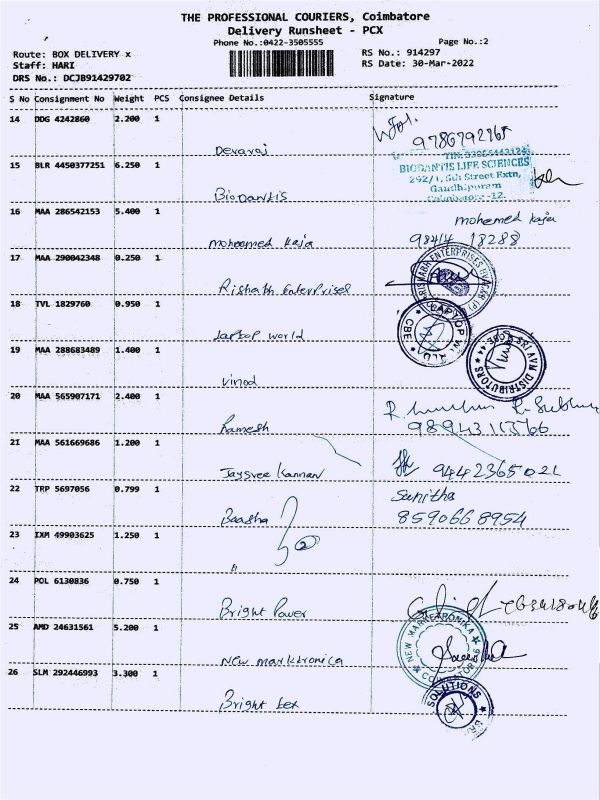 THE PROFESSIONAL COURIERS, Coimbatore
Delivery Runsheet - PCX
Phone No.:0422-3505555
Page No.:2
Route: BOX DELIVERY x
RS No.: 914297
Staff: HARI
RS Date: 30-Mar-2022
DRS No.: DCJB91429702
S No Consignment No Weight PCS Consignee Details Signature
14 DDG 4242860 2.200 1
Devaraj
15 BLR 4450377251 6.250 1
BIODANTIS LIFE SCIENCES
292/1, 5th Street Extn,
Gandhipuram
Coimbatore -12.
Biodantis
16 MAA 286542153 5.400 1
mohamed kaja
mohamed kaja
98414 18288
17 MAA 290042348 0.250 1
Rishabh Enterprises
18 TVL 1829760 0.950 1
Laptop world
LAPTOP WORLD
CBE
19 MAA 288683489 1.400 1
SRI AVM DISTRIBUTORS
Vinod
20 MAA 565907171 2.400 1
Ramesh
21 MAA 561669686 1.200 1
Jaysree Kannan
9442365022
22 TRP 5697056 0.799 1
Sunitha
Baasha
8590668954
23 IXM 49903625 1.250 1
24 POL 6130836 0.750 1
Bright Power
25 AMD 24631561 5.200 1
NEW MARKETRONIKA
New marktronica
26 SLM 292446993 3.300 1
SOLUTIONS
Bright tex